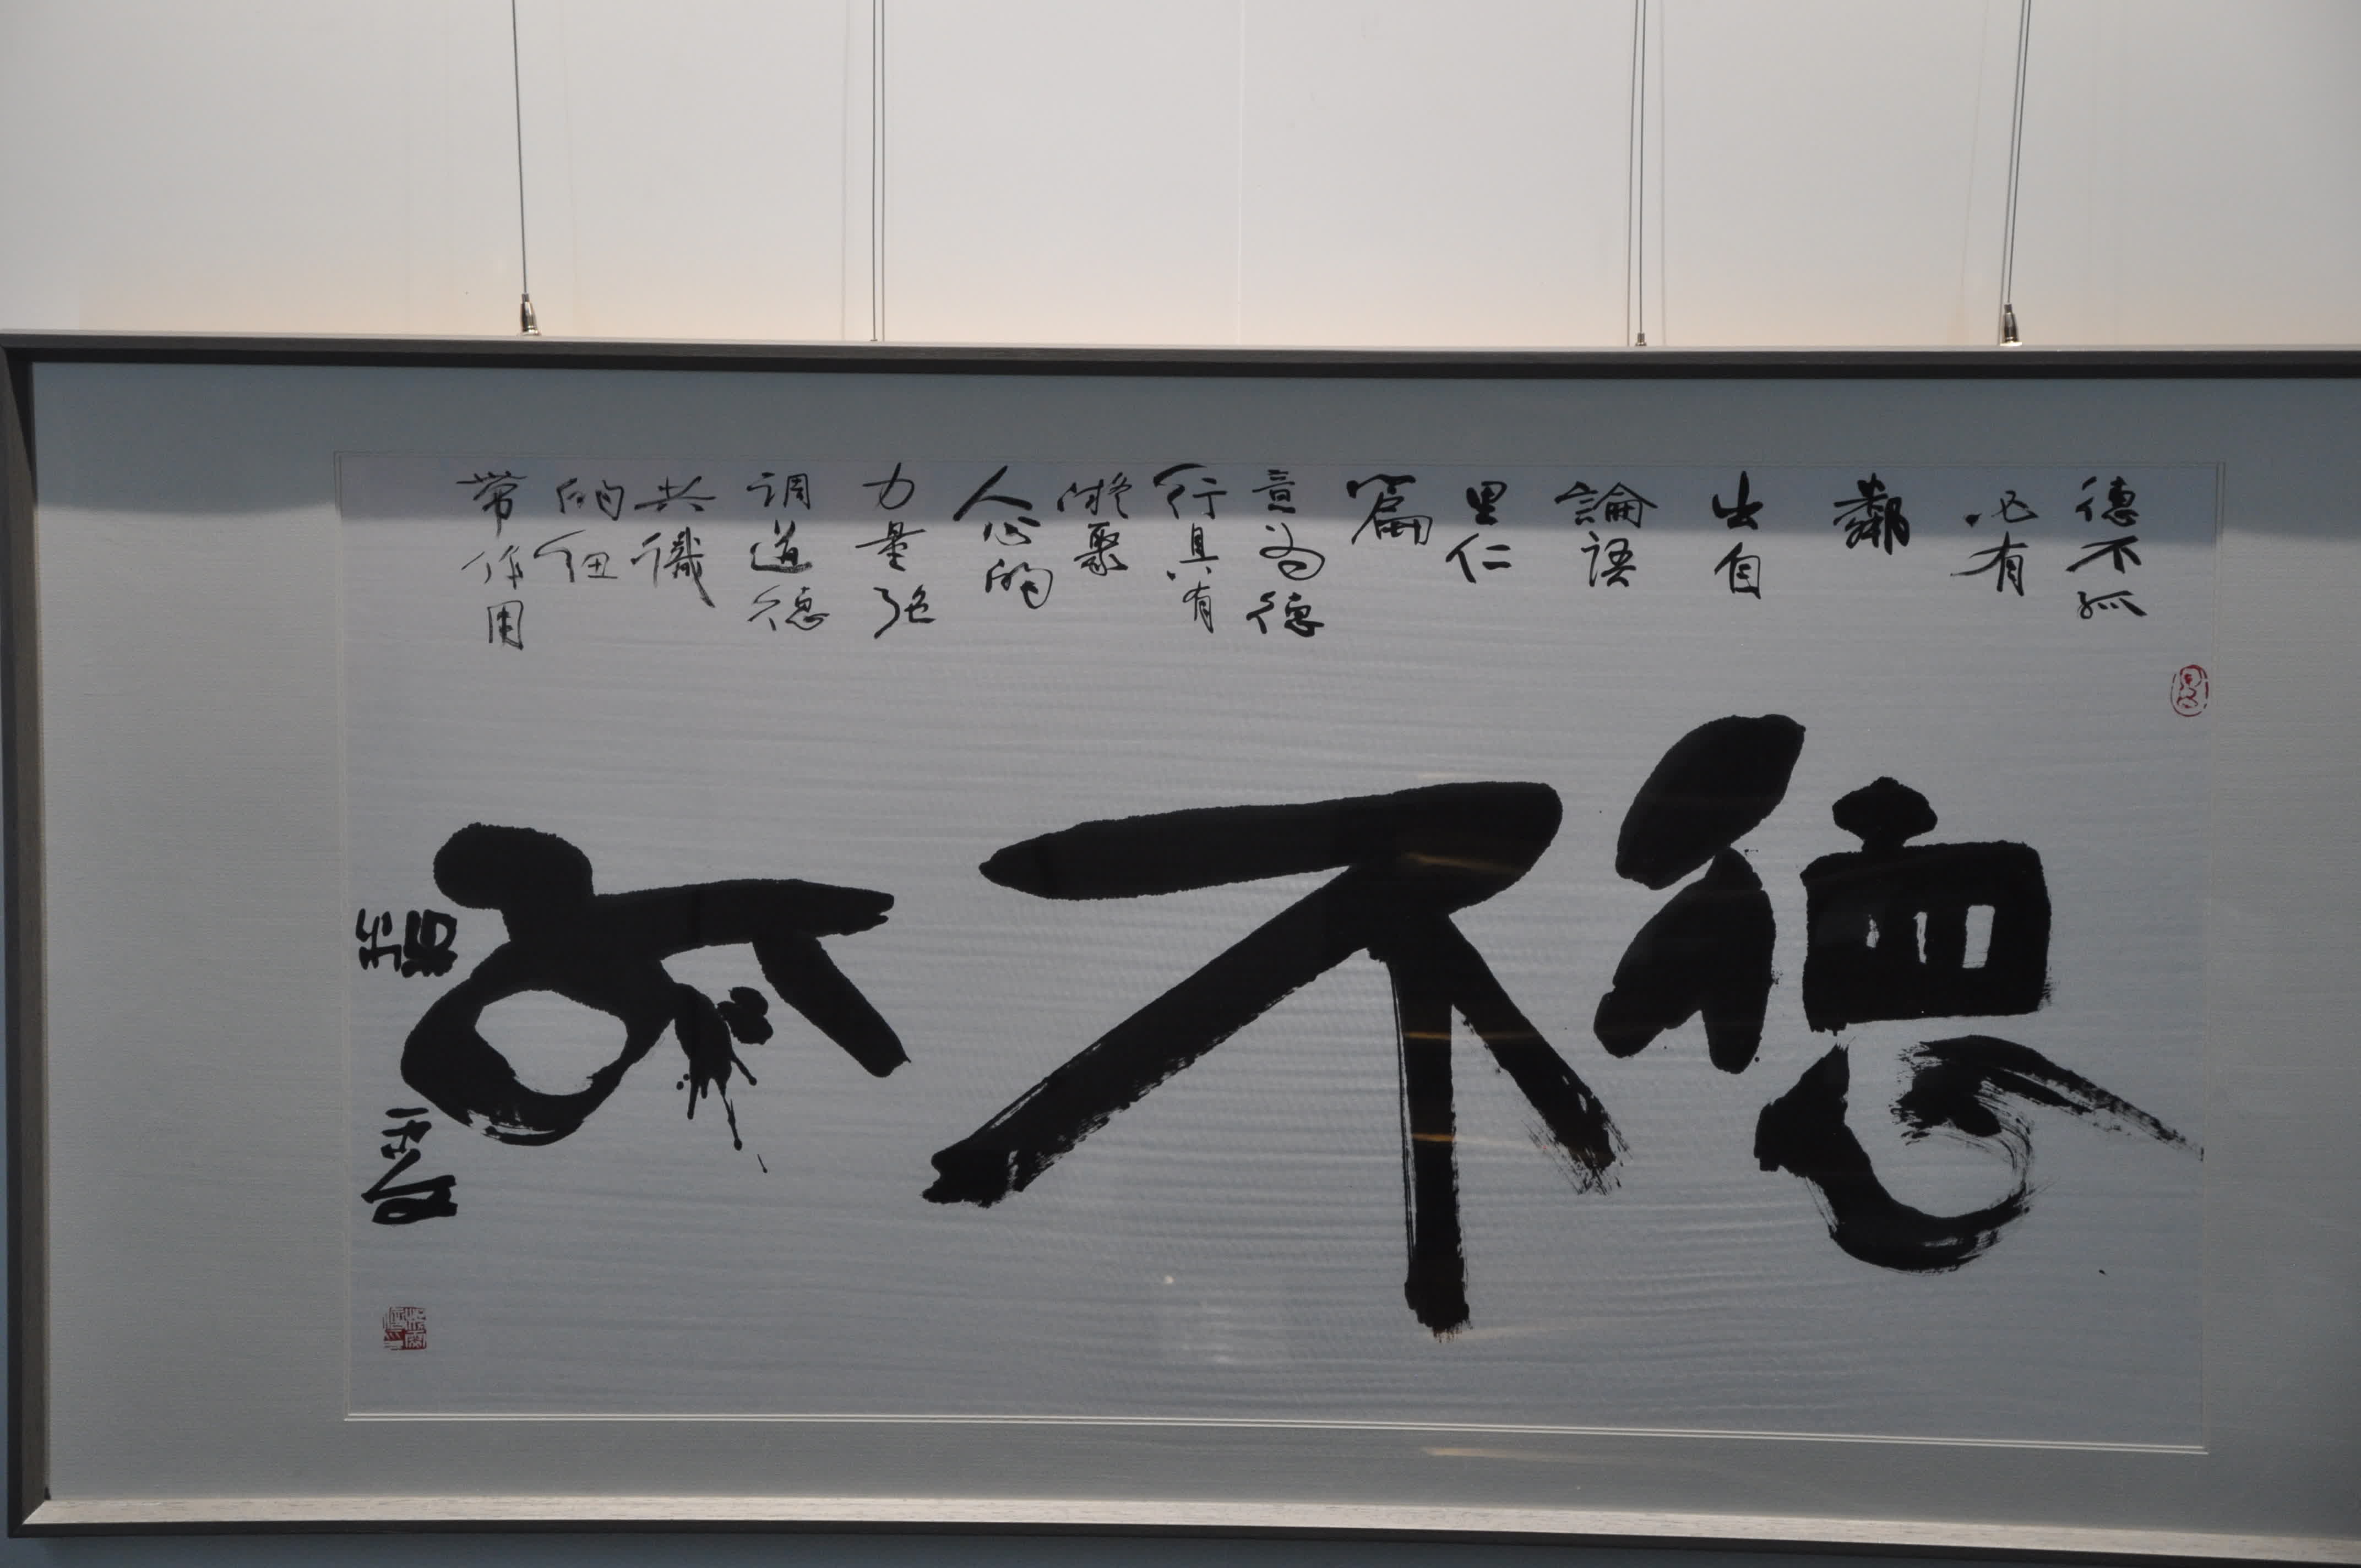 德不孤
必有
鄰
出自
論語
里仁
篇
意為德
行具有
凝聚
人心的
力量强
调道德
共識
的纽
带作用
德不孤